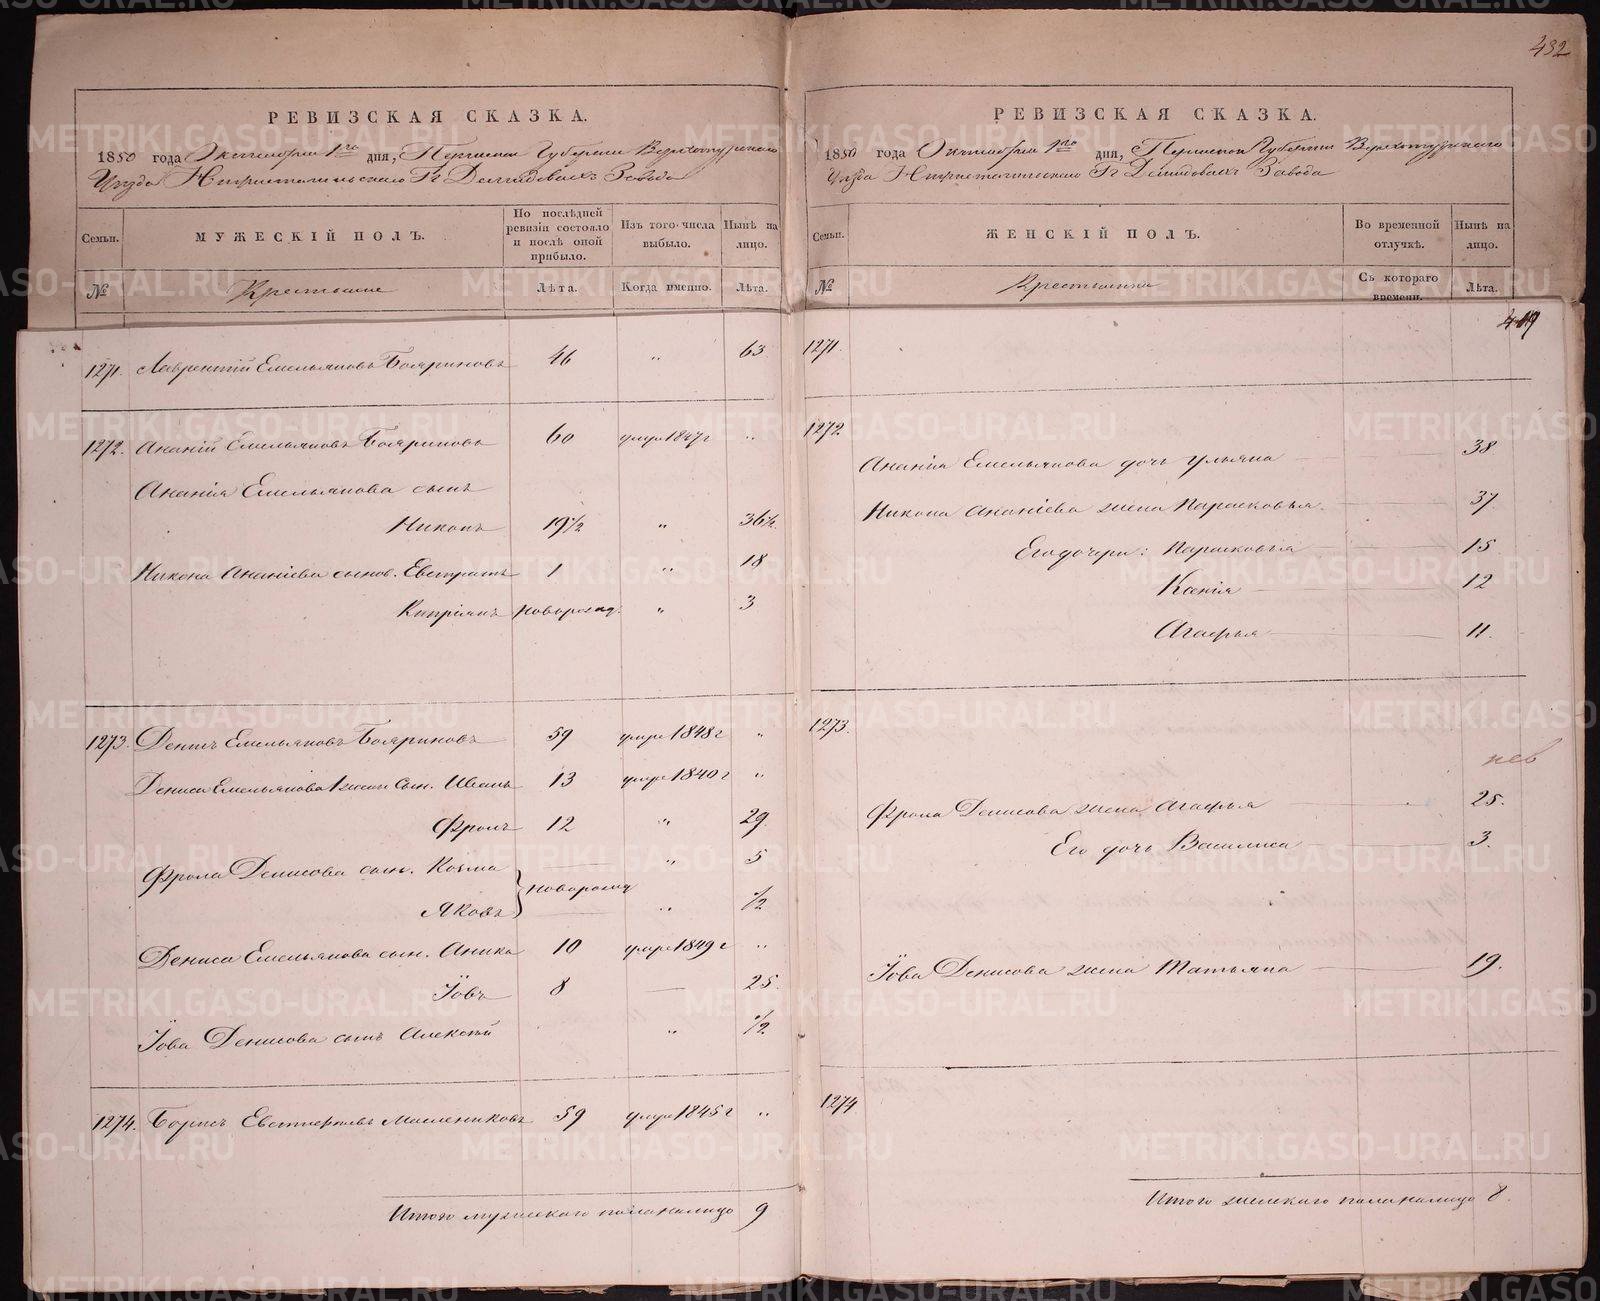 432
РЕВИЗСКАЯ СКАЗКА.
1850 года Октября 1го дня, Пермской Губернии Верхотурского
Уезда Нижнетагильского Гг Демидовыхъ Завода
Семьи.
МУЖЕСКІЙ ПОЛЪ.
По послѣдней ревизіи состояло и послѣ оной прибыло.
Изъ того числа выбыло.
Нынѣ на лицо.
№
Крестьяне
Лѣта.
Когда именно.
Лѣта.
1271. Лаврентій Емельяновъ Бояриновъ 46 " 63
1272. Ананій Емельяновъ Бояриновъ 60 умре 1847 г "
Ананія Емельянова сынъ
Никонъ 19 1/2 " 36 1/2
Никона Ананіева сынов. Евстратъ 1 " 18
Кипріянъ новорожд. " 3
1273. Денисъ Емельяновъ Бояриновъ 59 умре 1848 г "
Дениса Емельянова 1 жены сын. Иванъ 13 умре 1840 г "
Фролъ 12 " 29
Фрола Денисова сын. Козма " 5
новорожд
Яковъ " 1/2
Дениса Емельянова сын. Аника 10 умре 1849 г "
Іовъ 8 — 25
Іова Денисова сынъ Алексѣй " 1/2
1274. Борисъ Евстигнѣевъ Маслениковъ 59 умре 1845 г "
Итого мужескаго пола налицо 9
РЕВИЗСКАЯ СКАЗКА.
1850 года Октября 1го дня, Пермской Губерніи Верхотурского
Уезда Нижнетагильского Гг Демидовыхъ Завода
Семьи.
ЖЕНСКІЙ ПОЛЪ.
Во временной отлучкѣ.
Нынѣ на лицо.
№
Крестьянки
Съ котораго времени.
Лѣта.
419
1271.
1272.
Ананія Емельянова дочь Ульяна 38
Никона Ананіева жена Парасковья 37
Его дочери: Парасковья 15
Ксенія 12
Агафья 11.
1273.
Фрола Денисова жена Агафья 25.
Его дочь Василиса 3.
Іова Денисова жена Татьяна 19.
1274
Итого женскаго пола налицо 8.
METRIKI.GASO-URAL.RU